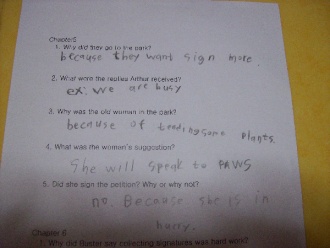 Chapter5
1. Why did they go to the park?
because they want sign more.
2. What were the replies Arthur received?
ex: we are busy
3. Why was the old woman in the park?
because of tending some plants.
4. What was the woman's suggestion?
She will speak to PAWS
5. Did she sign the petition? Why or why not?
no. Because she is in
hurry.
Chapter 6
1. Why did Buster say collecting signatures was hard work?